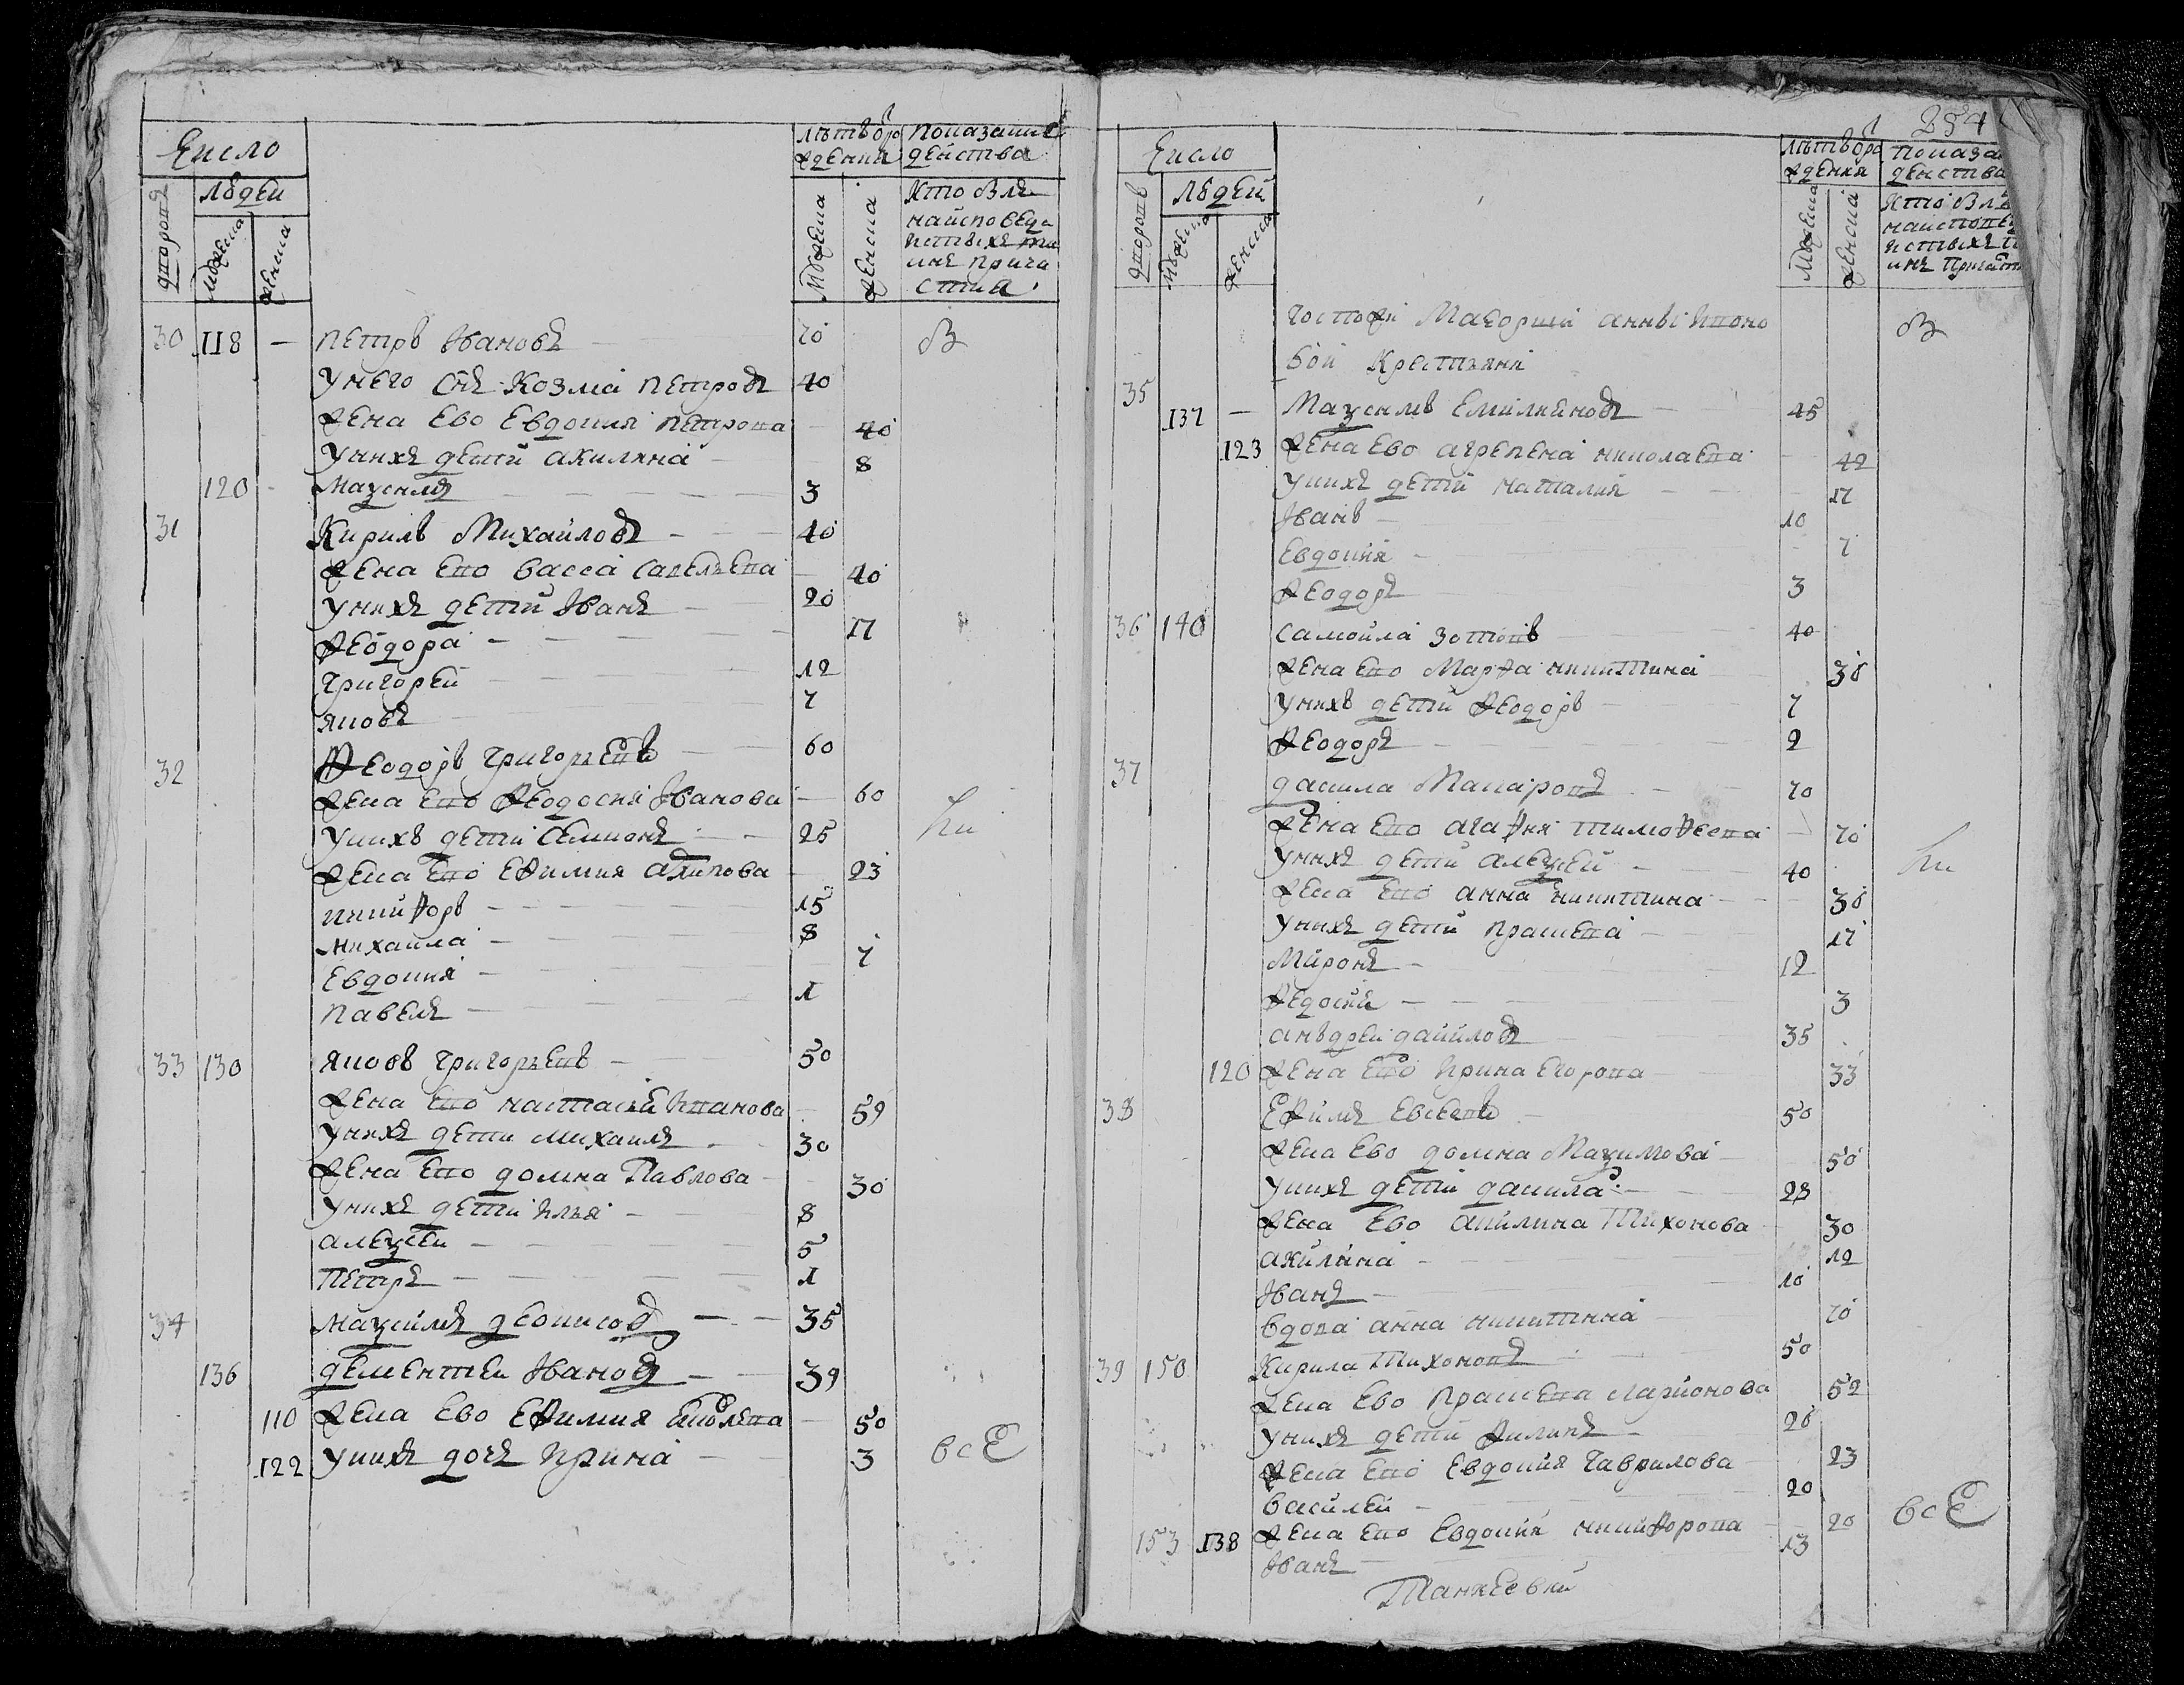 Число
Людей
дворовъ
мужеска
женска
лѣтъ от рождения
мужеска
женска
показание действа
Кто был
на исповеди
и святых та
инъ прича
стиа
30 118 — Петръ Ивановъ 70
У него снъ Козма Петровъ 40
Жена ево Евдокия Петрова 40
У нихъ дети Акилина 8
120 Максимъ 3
31 Кирилъ Михайловъ 40
Жена ево Васса Савельева 40
У нихъ дети Иванъ 20
Феодора 17
Григорей 12
Яковъ 7
32 Феодоръ Григорьевъ 60
Жена ево Феодосия Иванова 60
У нихъ дети Семионъ 25
Жена ево Ефимия Архипова 23
Никифоръ 15
Михаила 8
Евдокия 7
Павелъ 1
33 130 Яковъ Григорьевъ 50
Жена ево Настасия Иванова 59
У нихъ дети Михаилъ 30
Жена ево Домна Павлова 30
У нихъ дети Илья 8
Алексеи 5
Петръ 1
34 Максимъ Деонисов 35
136 Дементеи Иванов 39
110 Жена ево Ефимия 50
122 У нихъ дочь Ирина 3 все
254
Число
Людей
дворовъ
мужеска
женска
лѣтъ от рождения
мужеска
женска
Госпожи Маеорши Анны
вой Крестьяни
35
137 — Максимъ Емилиянов 45
123 Жена ево Агрепена Николаева 42
У нихъ дети Наталия 17
Иванъ 10
Евдокия 7
Феодоръ 3
36 140 Самойла Зотовъ 40
Жена ево Марфа Никитина 38
У нихъ дети Феодоръ 7
Феодоръ 2
37 Данила Макаровъ 70
Жена ево Агафия Тимофеева 70
У нихъ дети Алексей 40
Жена ево Анна Никитина 38
У нихъ дети Прасковa 17
Миронъ 12
Федосия 3
Андреи Данилов 35
120 Жена ево Ирина Егорова 33
38 Ефимъ Евсеевъ 50
Жена ево Домна Максимова 50
У нихъ дети Данила 28
Жена ево Акилина Тихонова 30
Акилина 12
Иванъ 10
Вдова Анна Никитина 70
39 150 Кирила Тихоновъ 50
Жена ево Ларионова 52
У нихъ дети Филипъ 26
Жена ево Евдокия Гаврилова 23
Василей 20
Жена ево Евдокия Никифорова 20 все
153 138 Иванъ 13